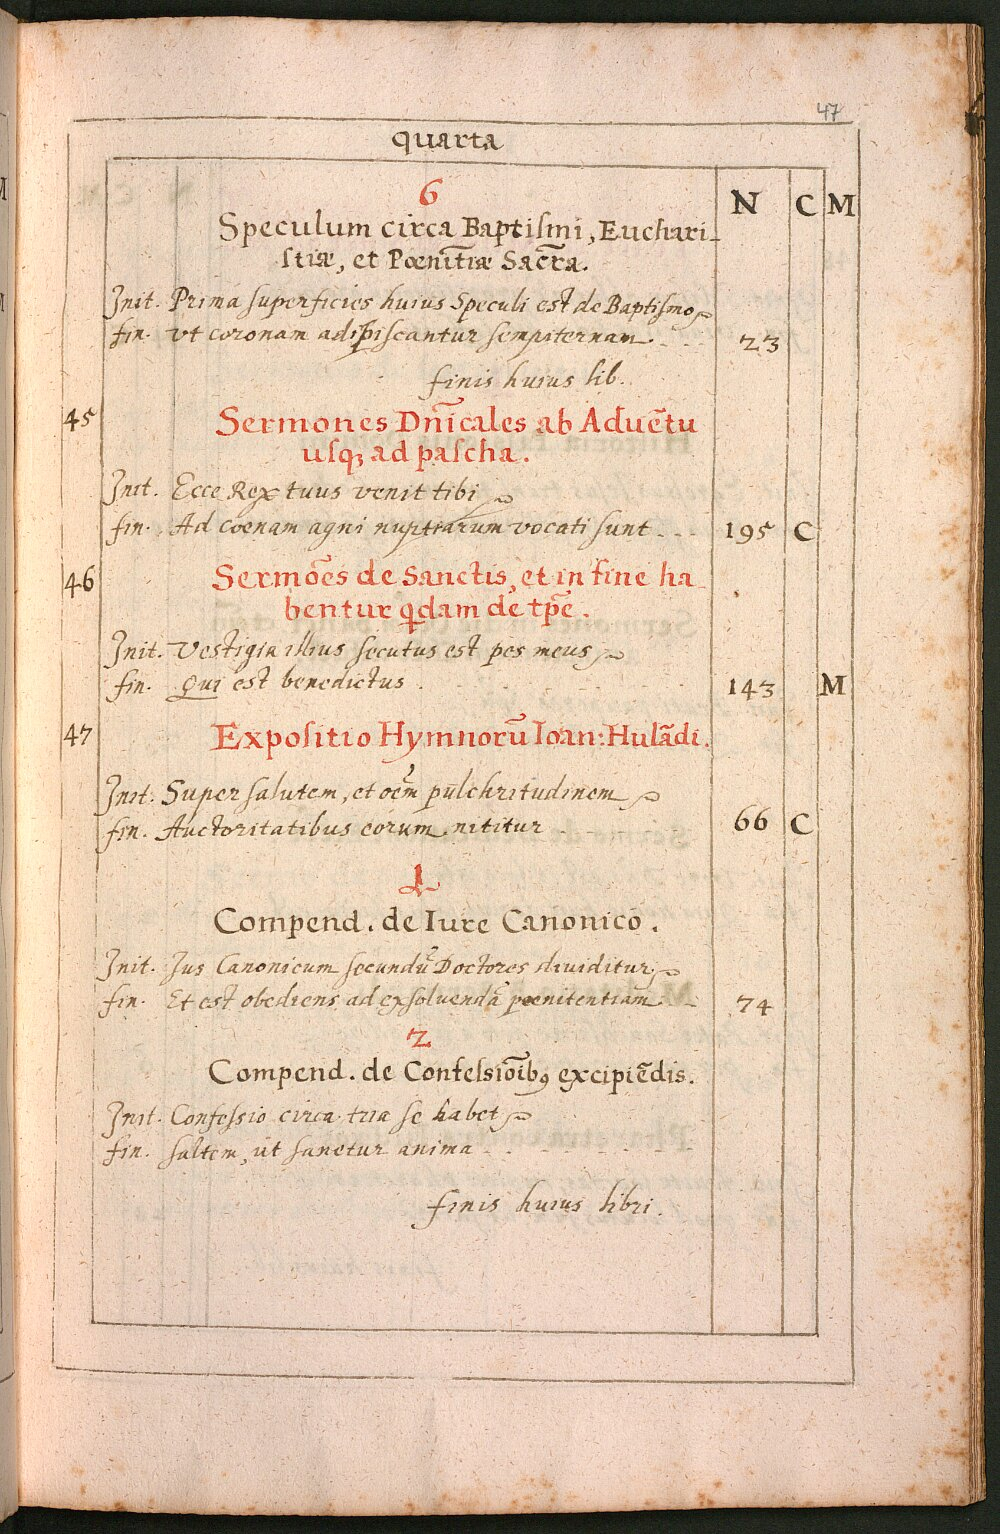 47
quarta
N C M
6
Speculum circa Baptiſmi, Euchari-
ſtiæ, et Pœnit̄iæ Sac̄ra.
Init. Prima ſuperficies huius Speculi est de Baptiſmo
fin. vt coronam adipiſcantur ſempiternam. 23
finis huius lib.
45 Sermones Dn̄icales ab Aduētu
uſqꝫ ad paſcha.
Init. Ecce Rex tuus venit tibi
fin. Ad coenam agni nuptiarum vocati ſunt 195 C
46 Sermōes de Sanctis, et in fine ha
bentur q̄dam de tp̄e.
Init. Vestigia illius ſecutus est pes meus
fin. Qui est benedictus 143 M
47 Expoſitio Hymnorū Ioan: Hulādi.
Init. Super ſalutem, et oēm pulchritudinem
fin. Auctoritatibus eorum nititur 66 C
1
Compend. de Iure Canonico.
Init. Jus Canonicum ſecundū Doctores diuiditur
fin. Et est obediens ad exſoluendā pœnitentiam. 74
2
Compend. de Confeſsiōibꝰ excipiēdis.
Init. Confeſsio circa tria ſe habet
fin. ſaltem, ut ſanetur anima
finis huius libri.